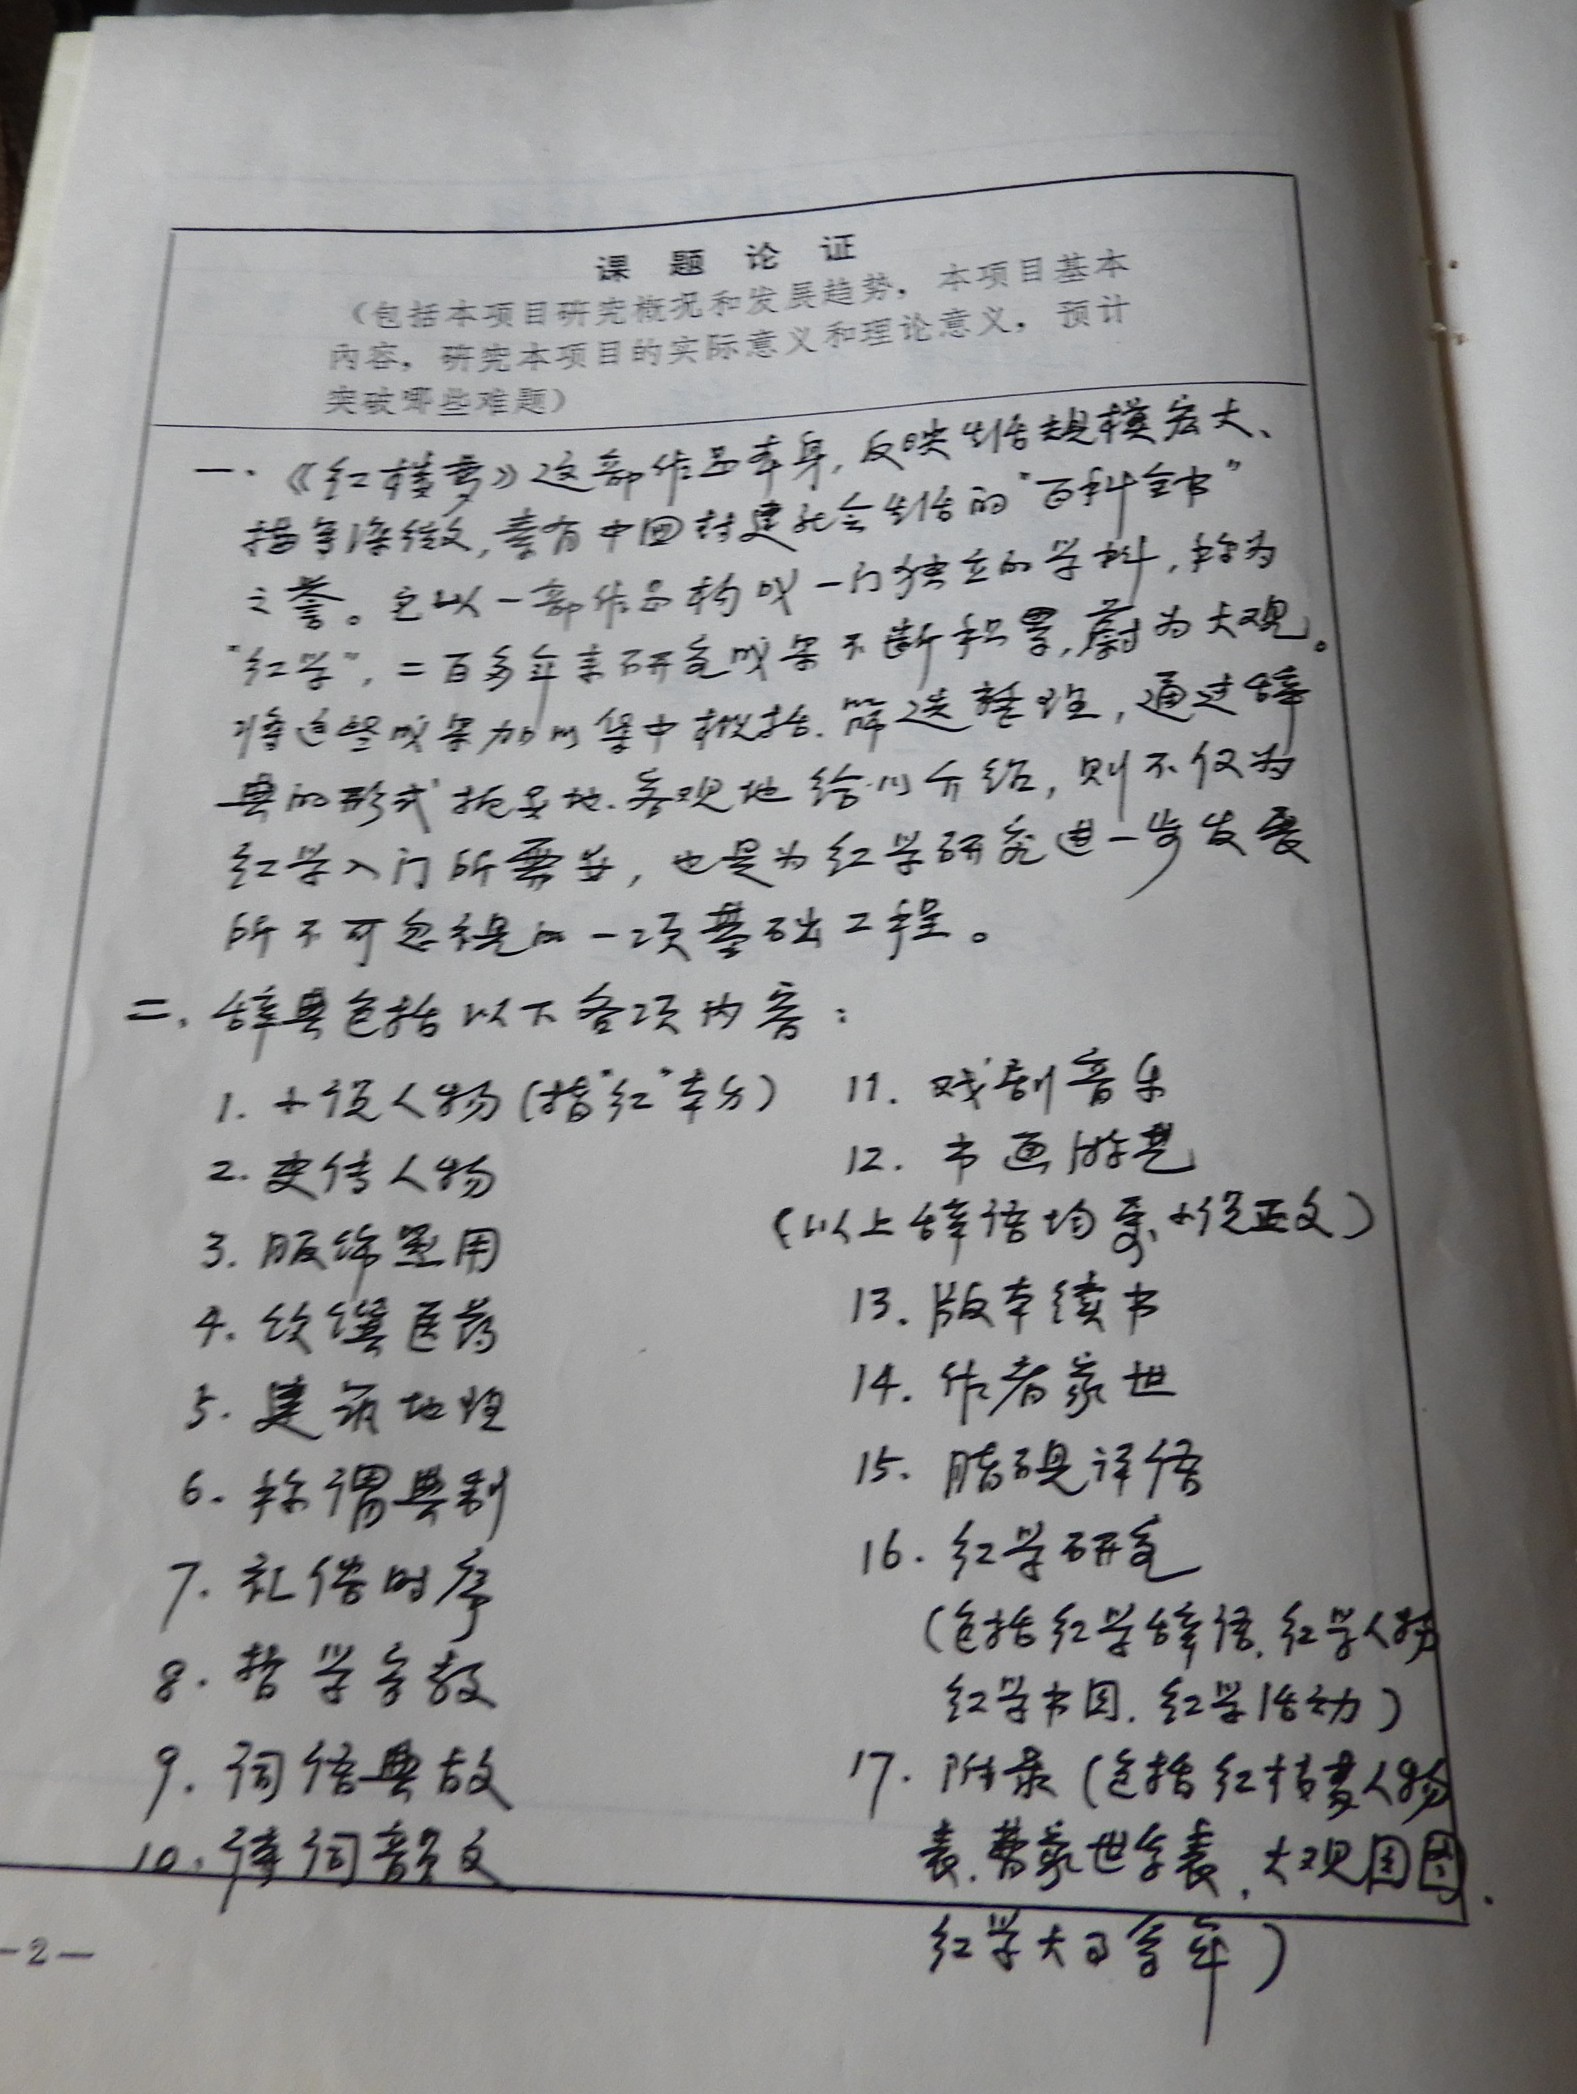 课题论证
（包括本项目研究概况和发展趋势，本项目基本
内容，研究本项目的实际意义和理论意义，预计
突破哪些难题）
一、《红楼梦》这部作品本身，反映生活规模宏大、
描写深微，素有中国封建社会生活的“百科全书”
之誉。它以一部作品构成一门独立的学科，称为
“红学”，二百多年来研究成果不断积累，蔚为大观。
将这些成果加以集中概括、筛选整理，通过辞
典的形式扼要地、客观地给以介绍，则不仅为
红学入门所需要，也是为红学研究进一步发展
所不可忽视的一项基础工程。
二、辞典包括以下各项内容：
1. 小说人物（指“红”本身）
2. 史传人物
3. 服饰器用
4. 饮馔医药
5. 建筑地理
6. 称谓典制
7. 礼俗时序
8. 哲学宗教
9. 词语典故
10. 诗词韵文
11. 戏剧音乐
12. 书画游艺
（以上辞语均系小说正文）
13. 版本续书
14. 作者家世
15. 脂砚评语
16. 红学研究
（包括红学辞语、红学人物
红学书目、红学活动）
17. 附录（包括红楼梦人物
表、曹家世系表、大观园图、
红学大事年）
-2-